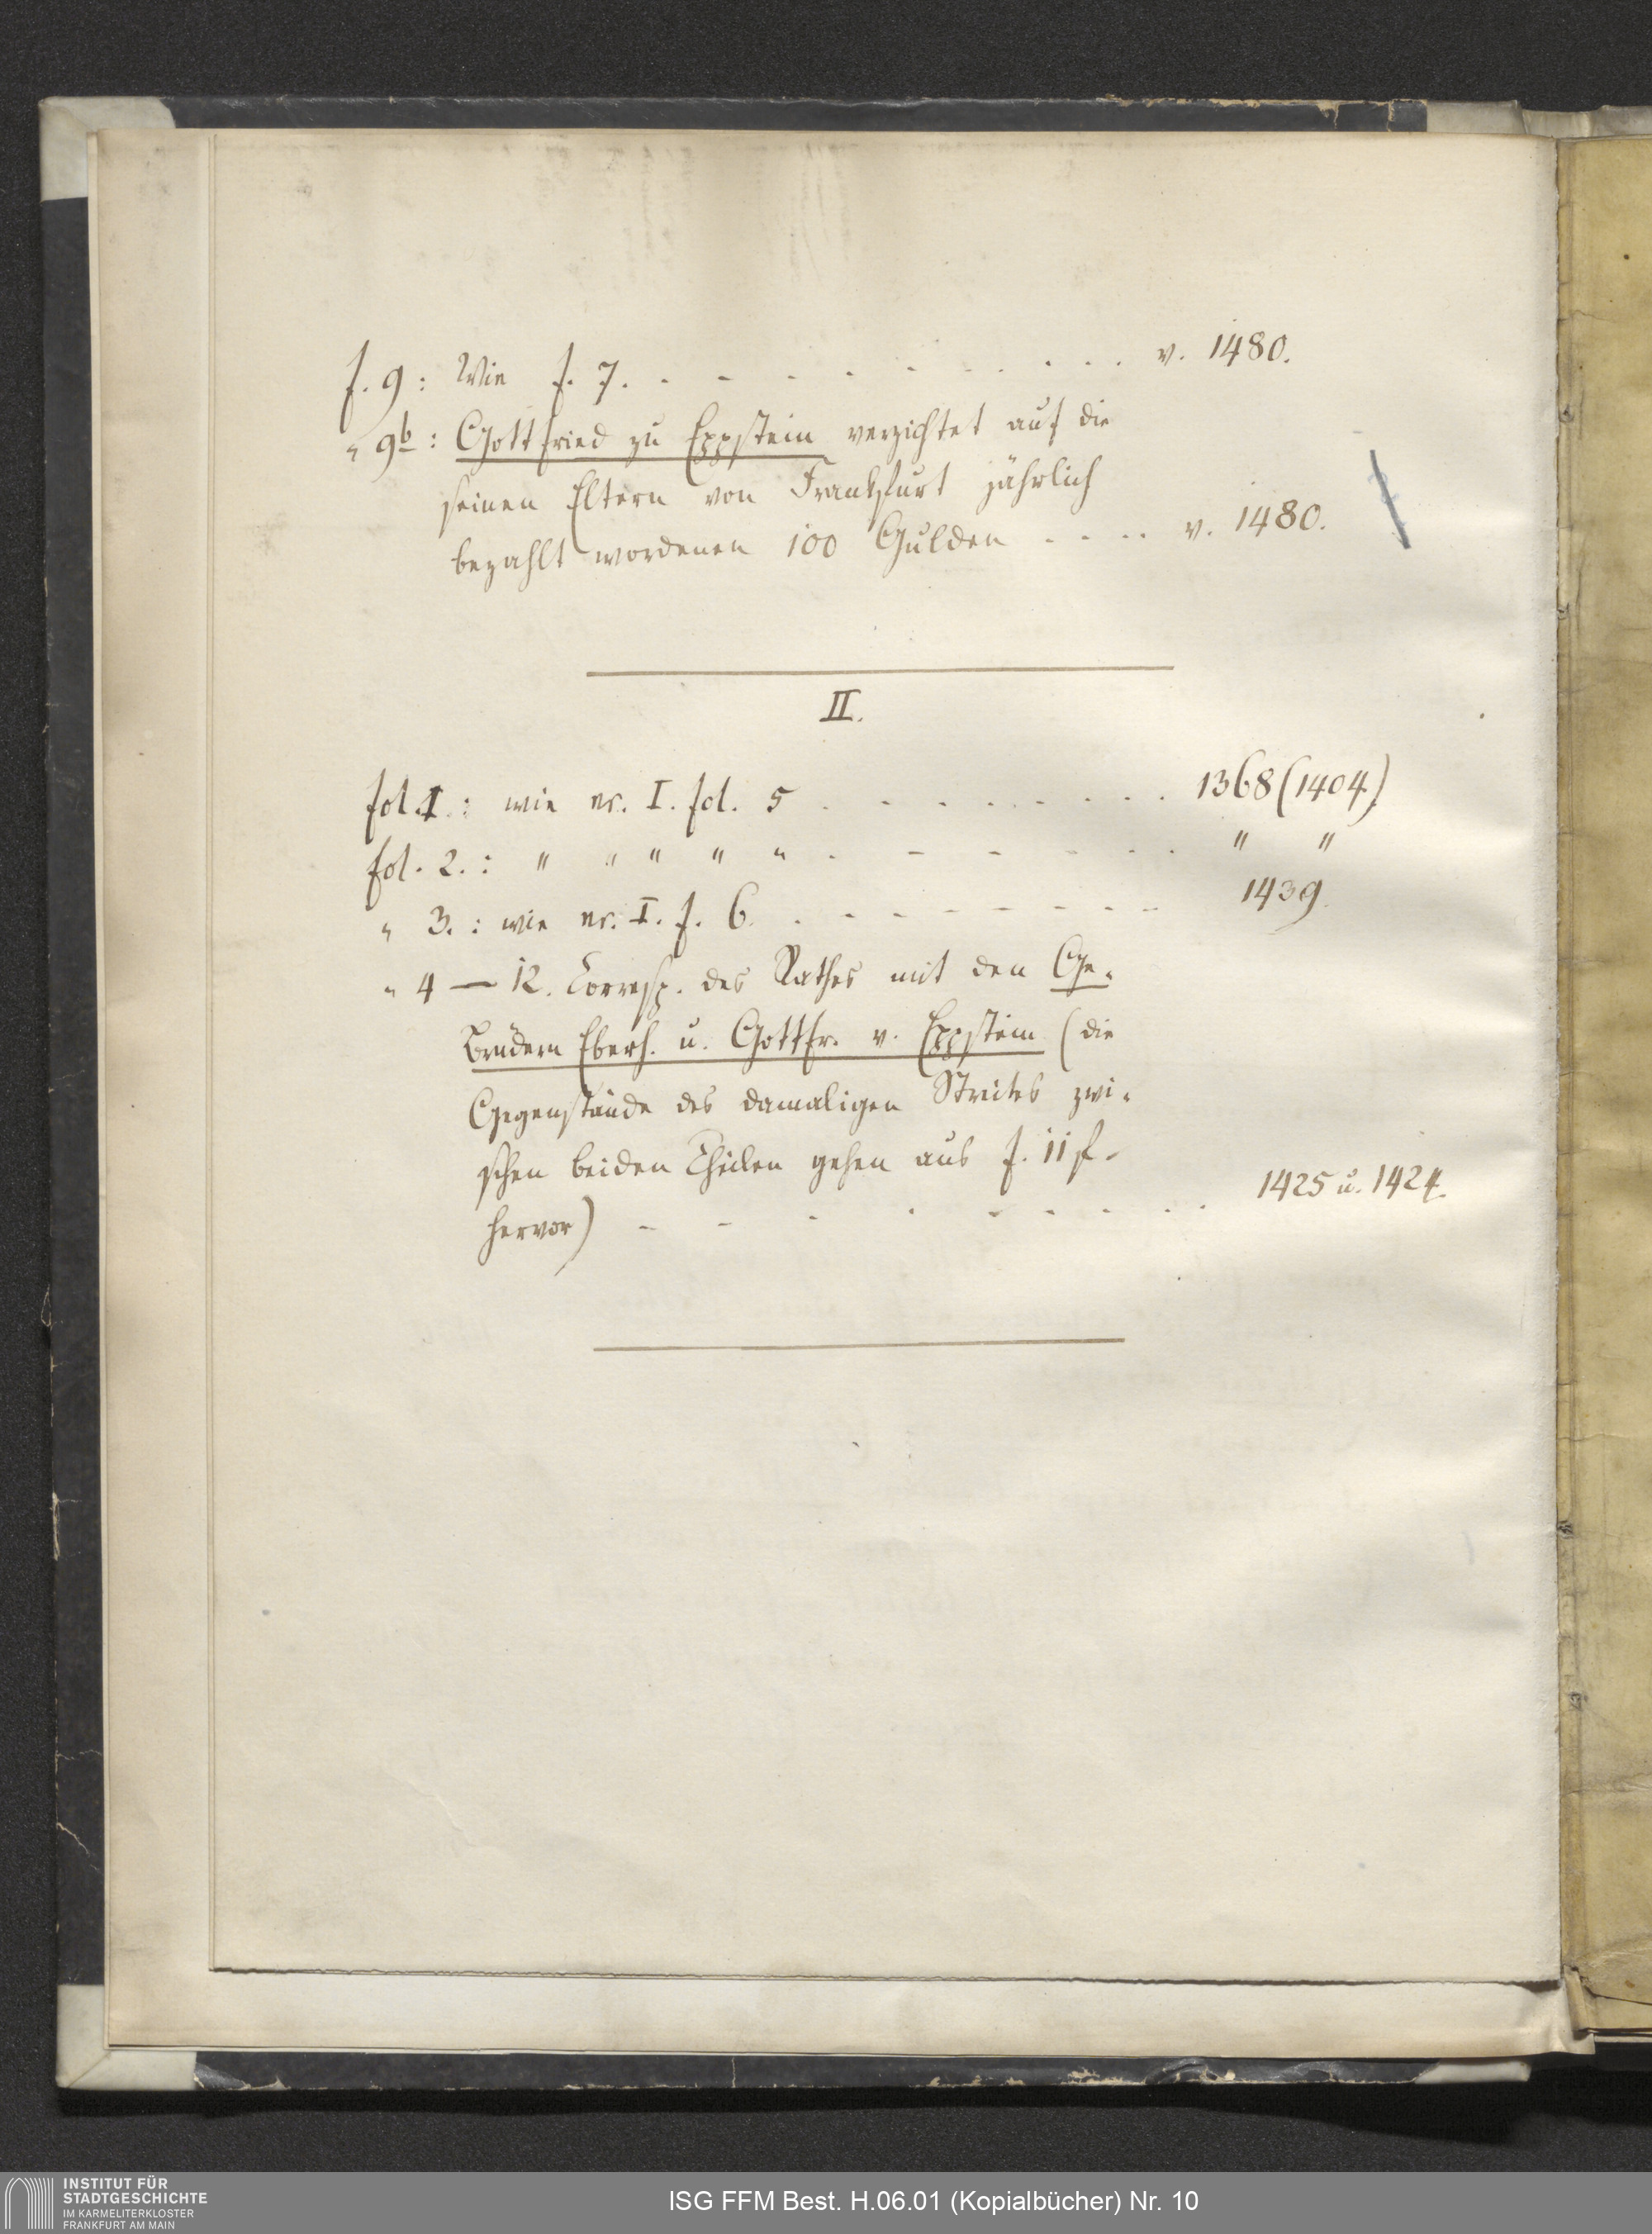 f. 9: Wie f. 7. - - - - - - - - - v. 1480.
" 9b: Gottfried zu Eppstein verzichtet auf die
seinen Eltern von Frankfurt jährlich
bezahlt wordenen 100 Gulden - - - - v. 1480.
II.
fol. 1.: wie nr. I. fol. 5 - - - - - - - - 1368 (1404)
fol. 2.: " " " " " - - - - - - " "
" 3.: wie nr. I. f. 6. - - - - - - - - 1439.
" 4 — 12. Corresp. des Rathes mit den Ge-
brüdern Eberh. u. Gottfr. v. Eppstein (die
Gegenstände des damaligen Streites zwi-
schen beiden Theilen gehen aus f. 11 f.
hervor) - - - - - - - - 1425 u. 1424.
INSTITUT FÜR
STADTGESCHICHTE
IM KARMELITERKLOSTER
FRANKFURT AM MAIN
ISG FFM Best. H.06.01 (Kopialbücher) Nr. 10